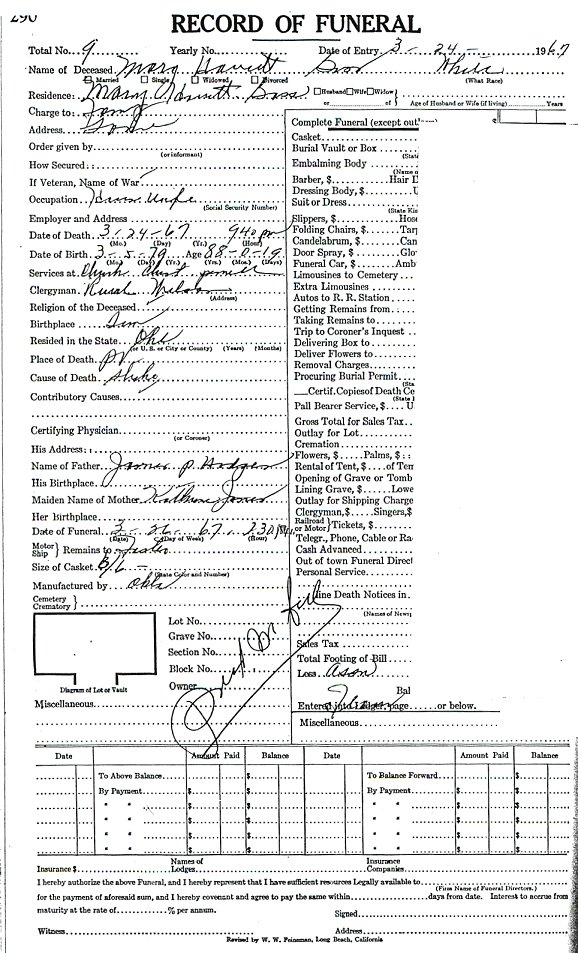 290
RECORD OF FUNERAL
Total No. 9 Yearly No. Date of Entry 3 - 24 - 1967
Name of Deceased Mary White
Married Single Widowed Divorced (What Race)
Residence: Mary Husband Wife Widow
or of Age of Husband or Wife (if living) Years
Charge to:
Address
Order given by
(or informant)
How Secured:
If Veteran, Name of War
Occupation House Wife
(Social Security Number)
Employer and Address
Date of Death 3-24-67 9:40 pm
(Mo.) (Day) (Yr.) (Hour)
Date of Birth 3-5-79 Age 88-0-19
(Mo.) (Day) (Yr.) (Yrs.) (Mos.) (Days)
Services at
Clergyman
(Address)
Religion of the Deceased
Birthplace
Resided in the State Okla
(or U. S. or City or County) (Years) (Months)
Place of Death
Cause of Death Stroke
Contributory Causes
Certifying Physician
(or Coroner)
His Address:
Name of Father James P
His Birthplace
Maiden Name of Mother Jones
Her Birthplace
Date of Funeral 3 26 67 2:30 pm
(Date) (Day of Week) (Hour)
Motor Ship Remains to
Size of Casket 6/6
(State Color and Number)
Manufactured by Okla
Cemetery
Crematory
Lot No.
Grave No.
Section No.
Block No.
Owner
Diagram of Lot or Vault
Miscellaneous
Complete Funeral (except out
Casket
Burial Vault or Box
(Stat
Embalming Body
(Name o
Barber, $ Hair D
Dressing Body, $ U
Suit or Dress
(State Ki
Slippers, $ Hose
Folding Chairs, $ Tar
Candelabrum, $ Can
Door Spray, $ Glo
Funeral Car, $ Amb
Limousines to Cemetery
Extra Limousines
Autos to R. R. Station
Getting Remains from
Taking Remains to
Trip to Coroner's Inquest
Delivering Box to
Deliver Flowers to
Removal Charges
Procuring Burial Permit
(Sta
Certif. Copies of Death Ce
(State
Pall Bearer Service, $ U
Gross Total for Sales Tax
Outlay for Lot
Cremation
Flowers, $ Palms, $
Rental of Tent, $ of Ten
Opening of Grave or Tomb
Lining Grave, $ Lowe
Outlay for Shipping Charge
Clergyman, $ Singers, $
Railroad or Motor Tickets, $
Telegr., Phone, Cable or Ra
Cash Advanced
Out of town Funeral Direc
Personal Service
line Death Notices in
(Names of News
Sales Tax
Total Footing of Bill
Less
Bal
Entered into Ledger, page or below.
Miscellaneous
Paid
Date Amount Paid Balance Date Amount Paid Balance
To Above Balance $ $ To Balance Forward $ $
By Payment $ $ By Payment $ $
" " $ $ " " $ $
" " $ $ " " $ $
" " $ $ " " $ $
" " $ $ " " $ $
Insurance $ Names of Lodges Insurance Companies
I hereby authorize the above Funeral, and I hereby represent that I have sufficient resources Legally available to
(Firm Name of Funeral Directors.)
for the payment of aforesaid sum, and I hereby covenant and agree to pay the same within days from date. Interest to accrue from
maturity at the rate of % per annum.
Signed
Witness Address
Revised by W. W. Feinman, Long Beach, California